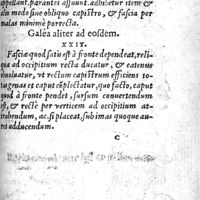 appellant, parantes assuunt. adhibetur item &
in modo sine obliquo capistro, & fascia per
malas minime porrecta.
Galea aliter ad eosdem.
XXIX.
Fascia quod satis est à fronte dependeat, reli
qua ad occipitium recta ducatur, & eatenus
inuoluatur, vt rectum capistrum efficiens to
tu genas et caput cõplectatur, quo facto, caput
quod à fronte pendet, sursum conuertendum
est, & rectè per verticem ad occipitium at
trahendum, ac si placeat, subimas quoque au
ris adducendum.
C